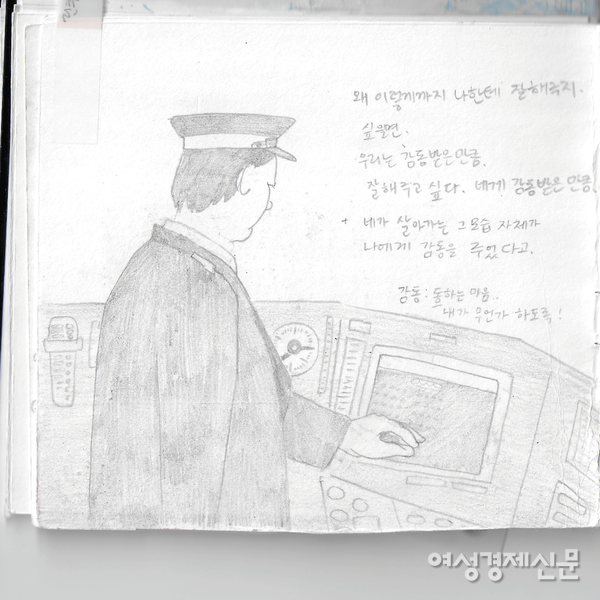 왜 이렇게까지 나한테 잘해주지.
싶을면.
우리는 감동받은만큼.
잘해주고 싶다. 네게 감동받은 만큼.
+ 네가 살아가는 그 모습 자체가
나에게 감동을 주었다고.
감동: 동하는 마음..
내가 무언가 하도록!
여성경제신문